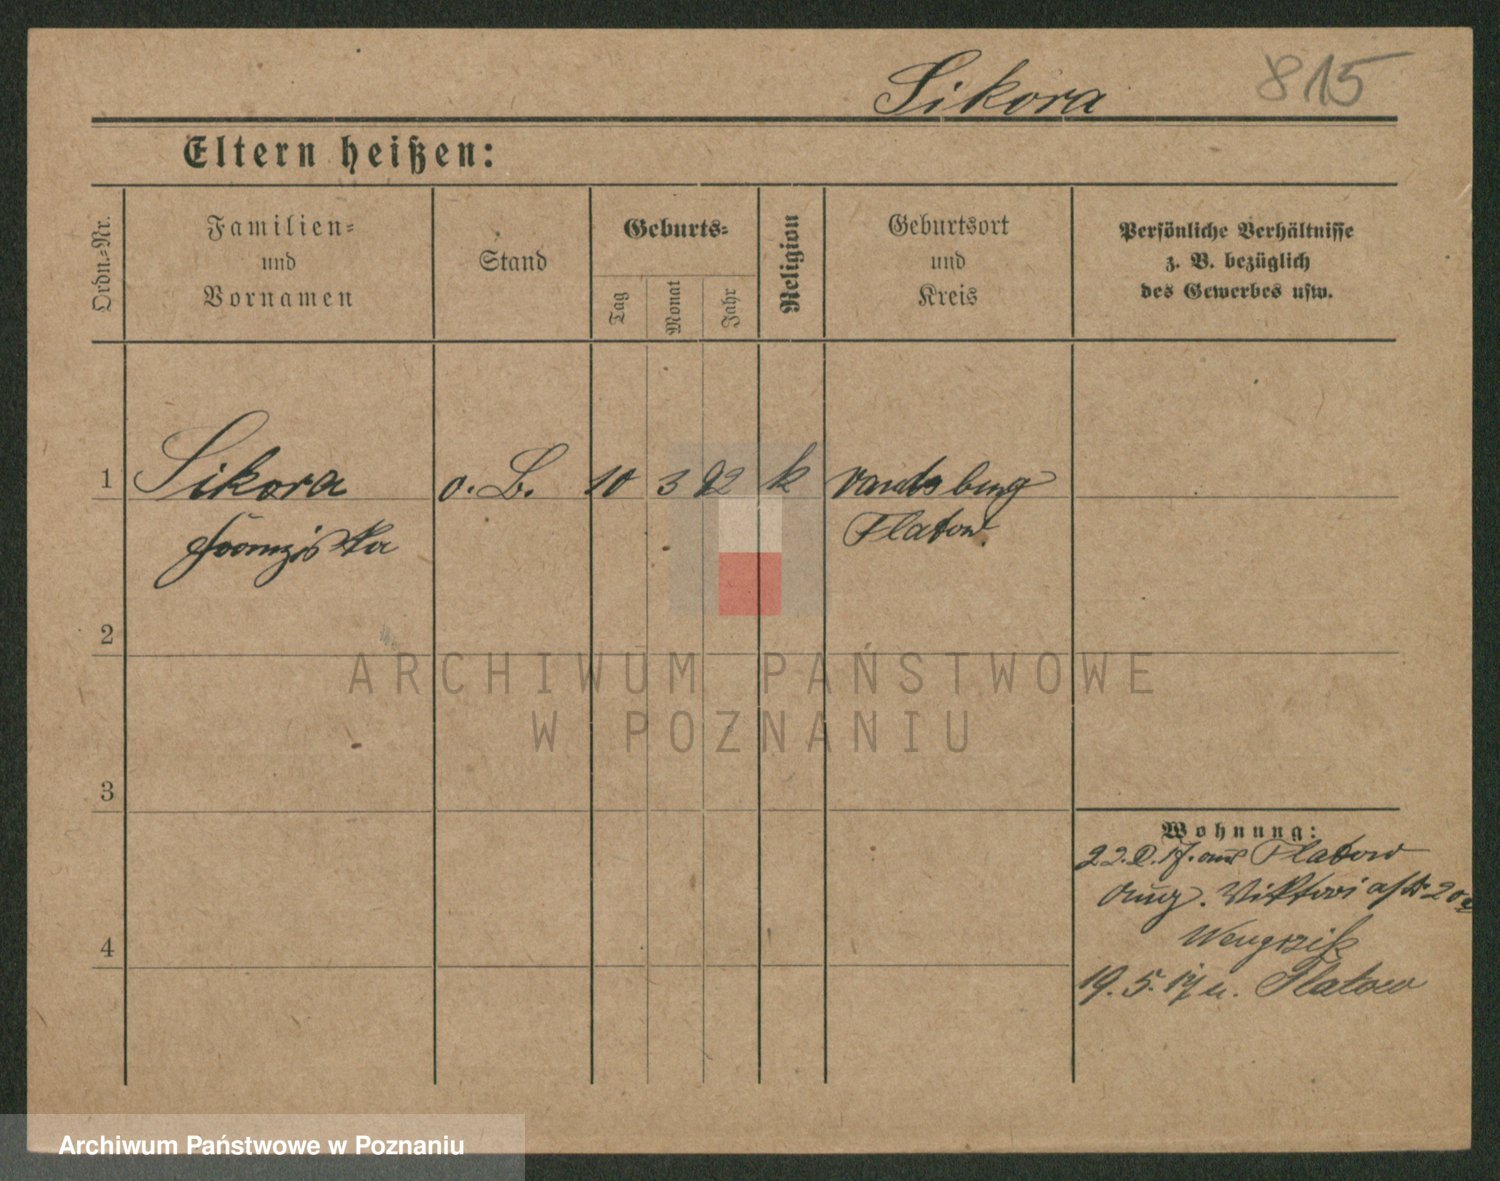 Sikora 815
Eltern heißen:
Ordn.-Nr.
Familien-
und
Vornamen
Stand
Geburts-
Tag
Monat
Jahr
Religion
Geburtsort
und
Kreis
Persönliche Verhältnisse
z. B. bezüglich
des Gewerbes usw.
1 Sikora o. B. 10 3 92 k Vandsburg
Franziska Flatow.
2
3
4
Wohnung:
22. 2. 17. aus Flatow
Viktori
19. 5. 17 n. Flatow
ARCHIWUM PAŃSTWOWE
W POZNANIU
Archiwum Państwowe w Poznaniu